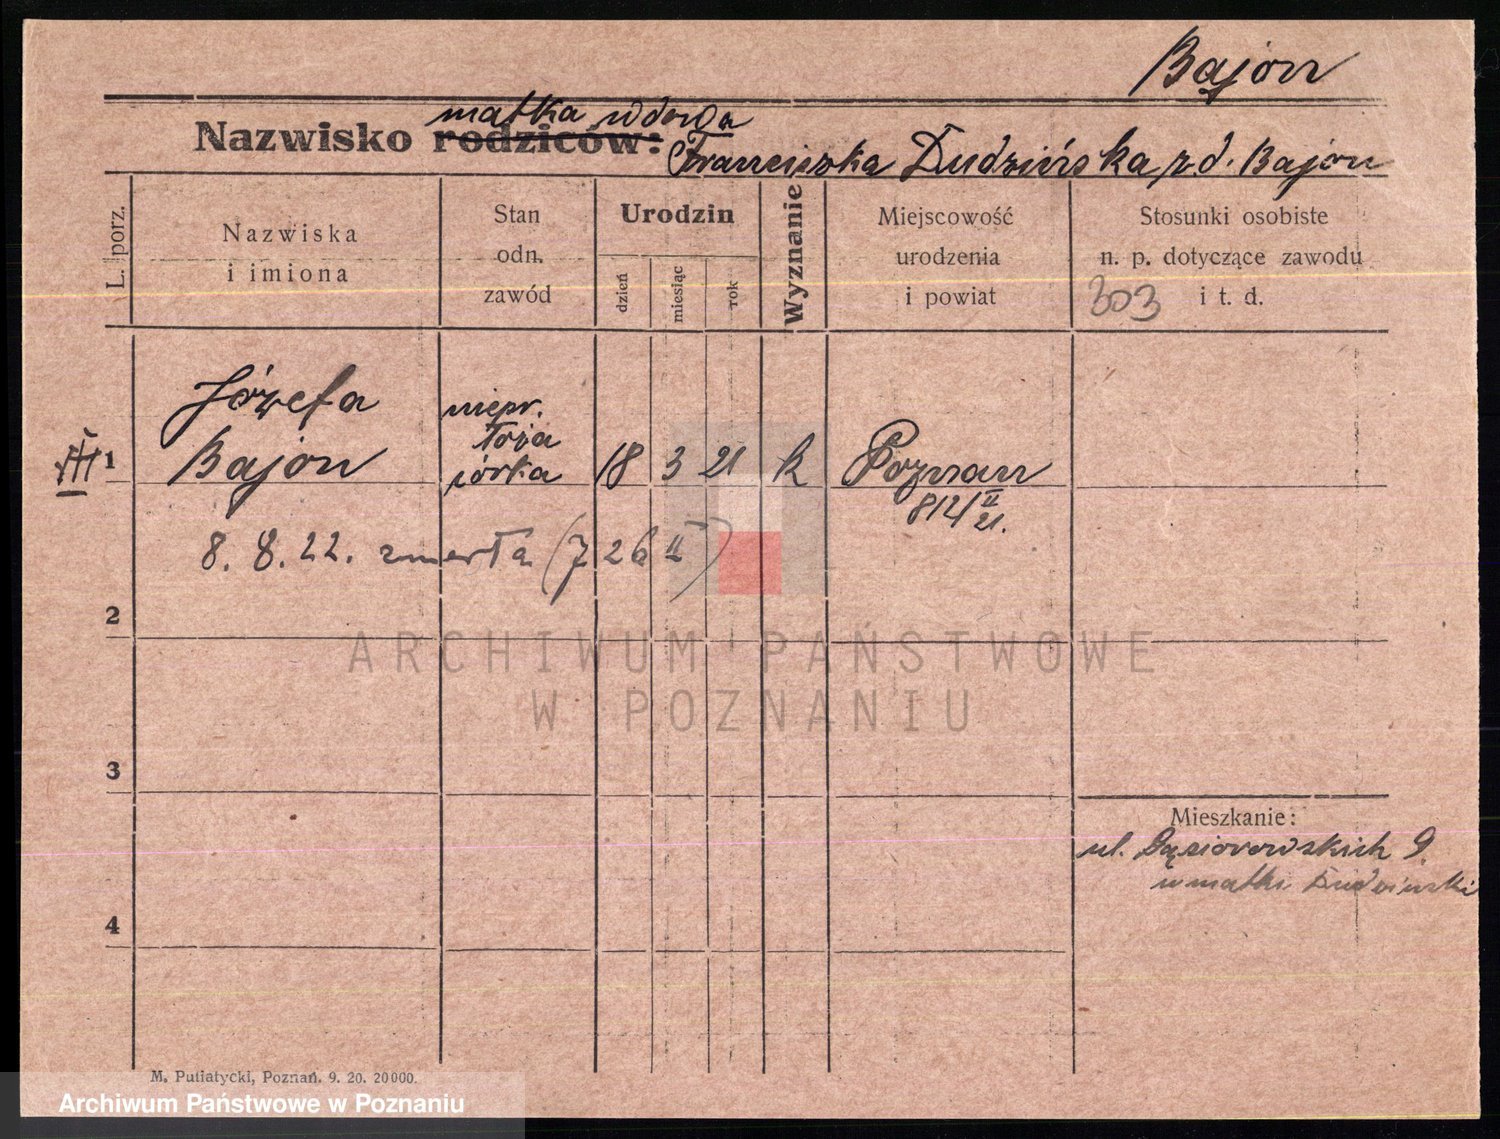 Bajon
matka wdowa
Nazwisko rodziców: Franciszka Dudzińska z. d. Bajon
L. porz.
Nazwiska
i imiona
Stan
odn.
zawód
Urodzin
dzień
miesiąc
rok
Wyznanie
Miejscowość
urodzenia
i powiat
Stosunki osobiste
n. p. dotyczące zawodu
i t. d.
303
Józefa
Bajon
niepr.
córka
1
18 3 21 k Poznan
812/II
21.
8. 8. 22. zmarła (726 II)
2
3
4
Mieszkanie:
ul. Gąsiorowskich 9.
u matki Dudzinski
M. Putiatycki, Poznań. 9. 20. 20000.
ARCHIWUM PAŃSTWOWE
W POZNANIU
Archiwum Państwowe w Poznaniu